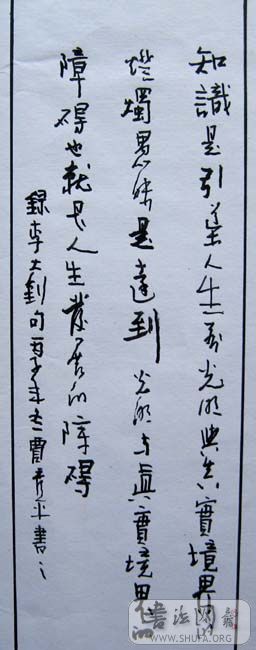 知識是引導人生到光明與真實境界的
燈燭愚昧是達到光明与真實境界
障碍也就是人生發展的障碍
録李大釗句 書
書法網
WWW.SHUFA.ORG